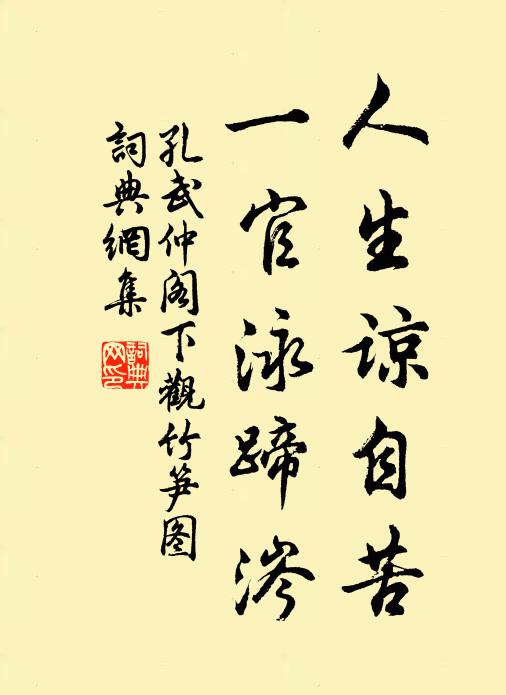 人生谅自苦
一官泳蹄涔
孔武仲阁下觀竹笋图
詞典網集
詞典網印